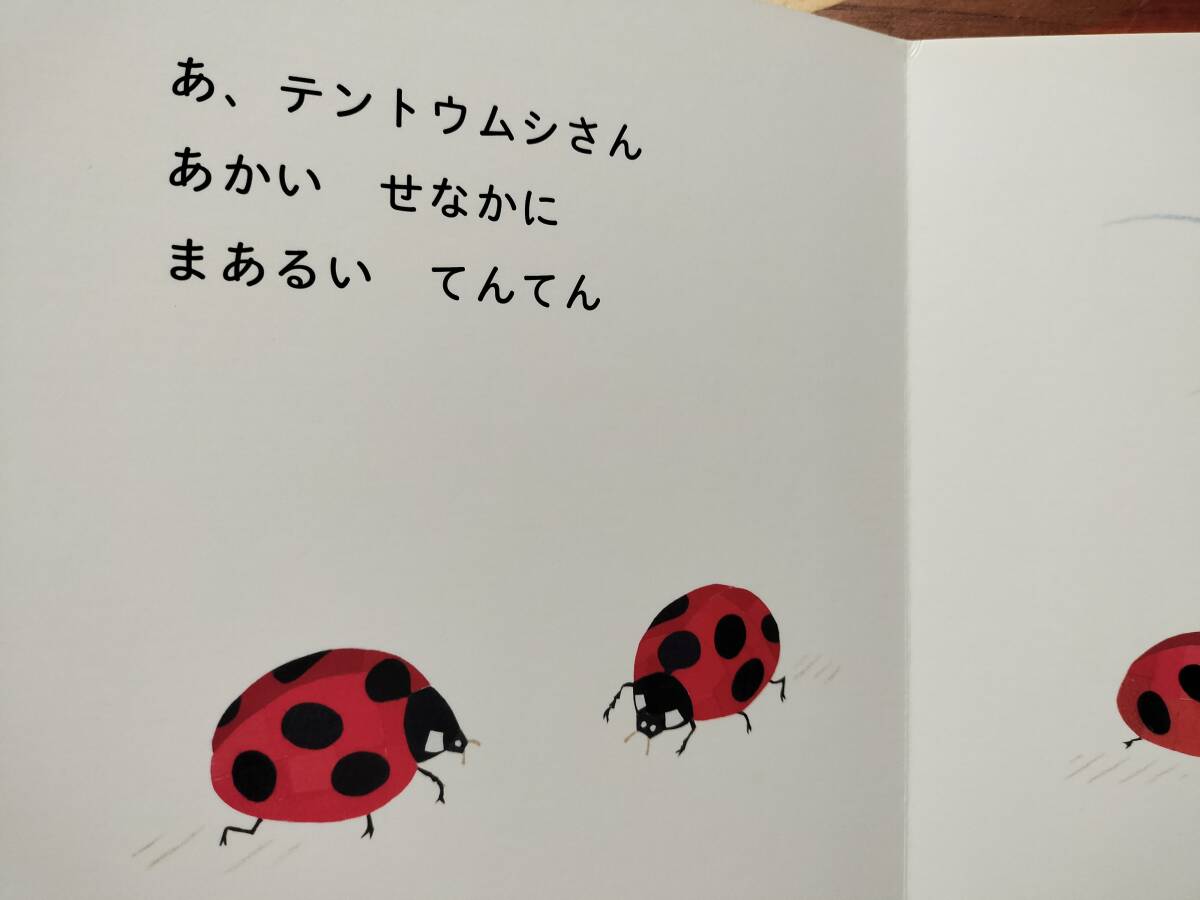 あ、テントウムシさん
あかい　せなかに
まあるい　てんてん